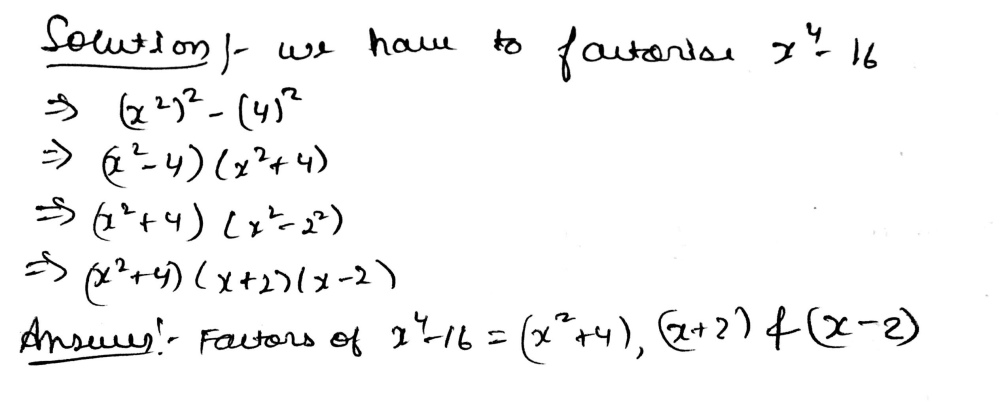 Solution :- we have to factorise x⁴- 16
⇒ (x²)² - (4)²
⇒ (x²-4) (x²+4)
⇒ (x²+4) (x²-2²)
⇒ (x²+4) (x+2)(x-2)
Answer:- Factors of x⁴-16 = (x²+4), (x+2) & (x-2)